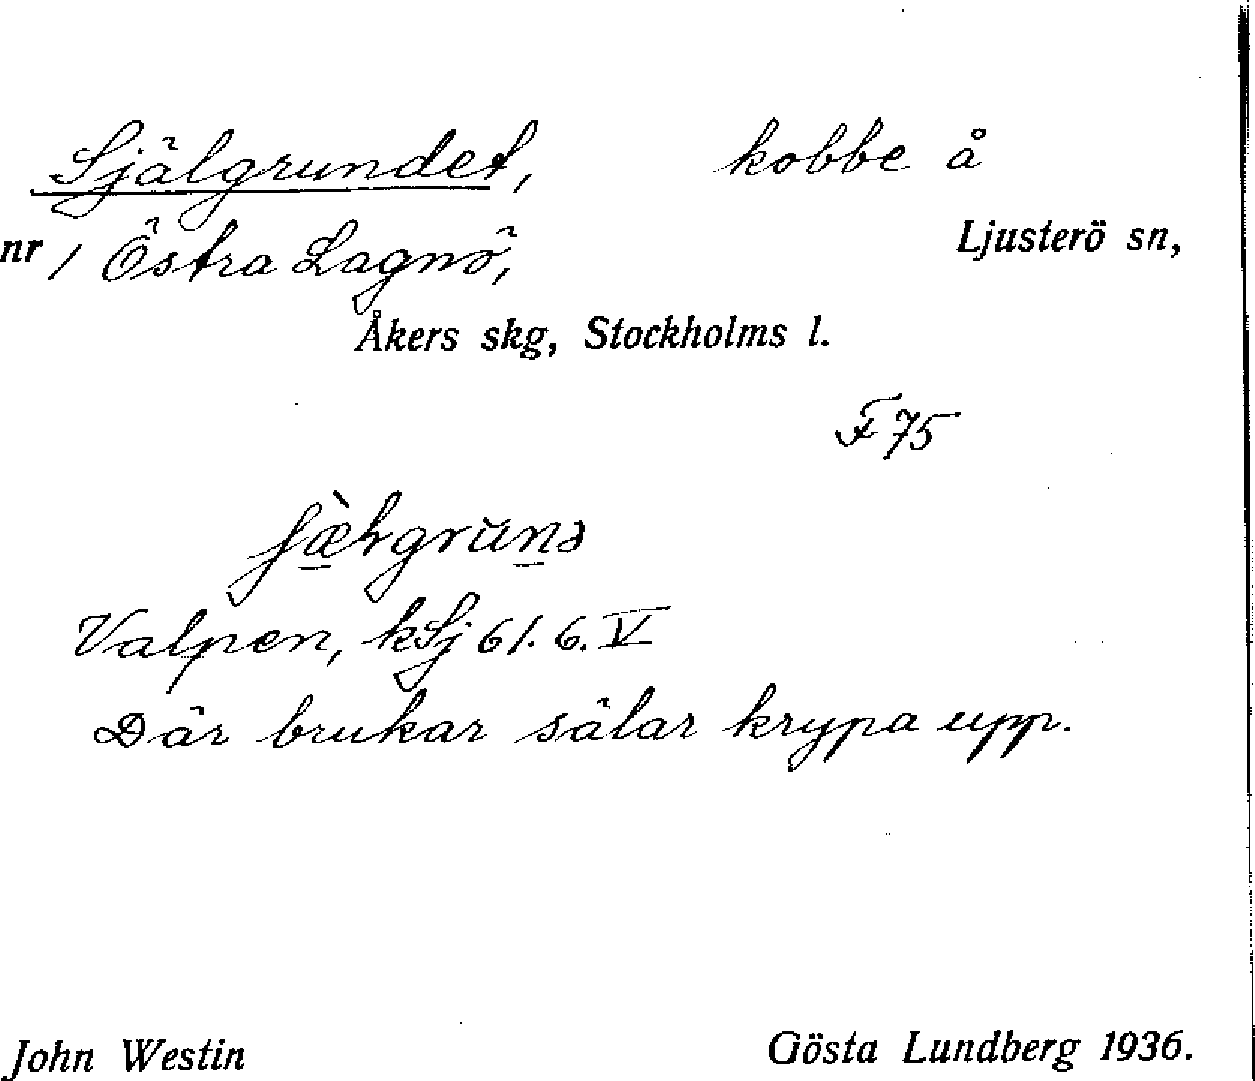 Själgrundet, kobbe å
nr 1 Östra Lagnö, Ljusterö sn,
Åkers skg, Stockholms l.
F 75
Valpen, kSj 61. 6. V
Där brukar sälar krypa upp.
John Westin Gösta Lundberg 1936.